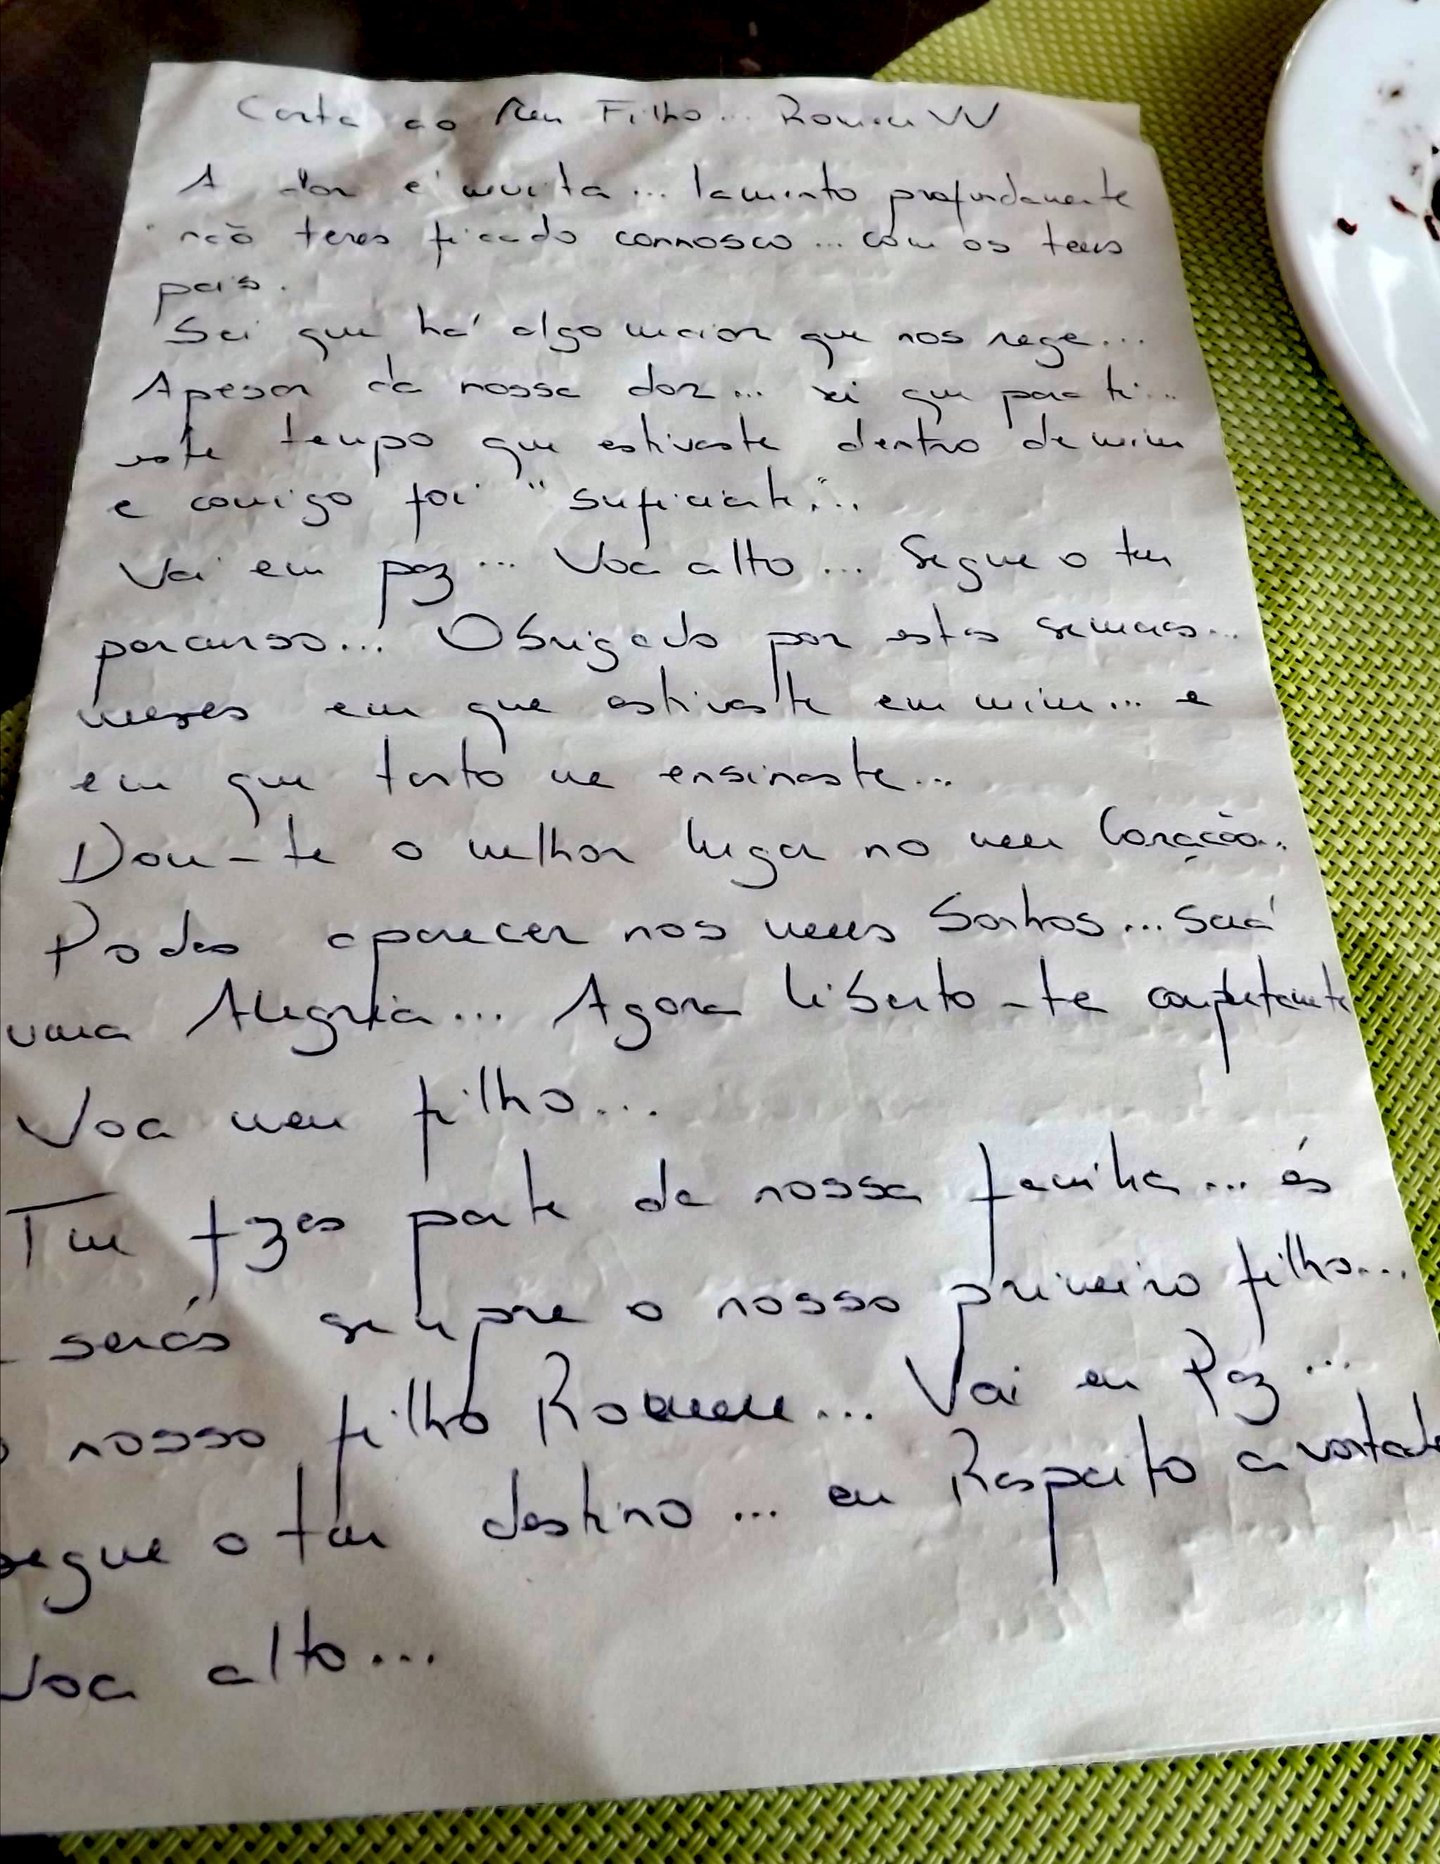 Carta ao Meu Filho... Romeu VV
A dor é muita... lamento profundamente
não teres ficado connosco... com os teus
pais.
Sei que há algo maior que nos rege...
Apesar da nossa dor... sei que para ti...
este tempo que estiveste dentro de mim
e comigo foi "suficiente"...
Vai em paz... Voa alto... Segue o teu
percurso... Obrigado por estas semanas...
meses em que estiveste em mim... e
em que tanto me ensinaste...
Dou-te o melhor lugar no meu Coração...
Podes aparecer nos meus Sonhos... Será
uma Alegria... Agora liberto-te completamente
Voa meu filho...
Tu fazes parte da nossa família... és
e serás sempre o nosso primeiro filho...
o nosso filho Romeu... Vai em Paz...
segue o teu destino... eu Respeito a vontade
Voa alto...